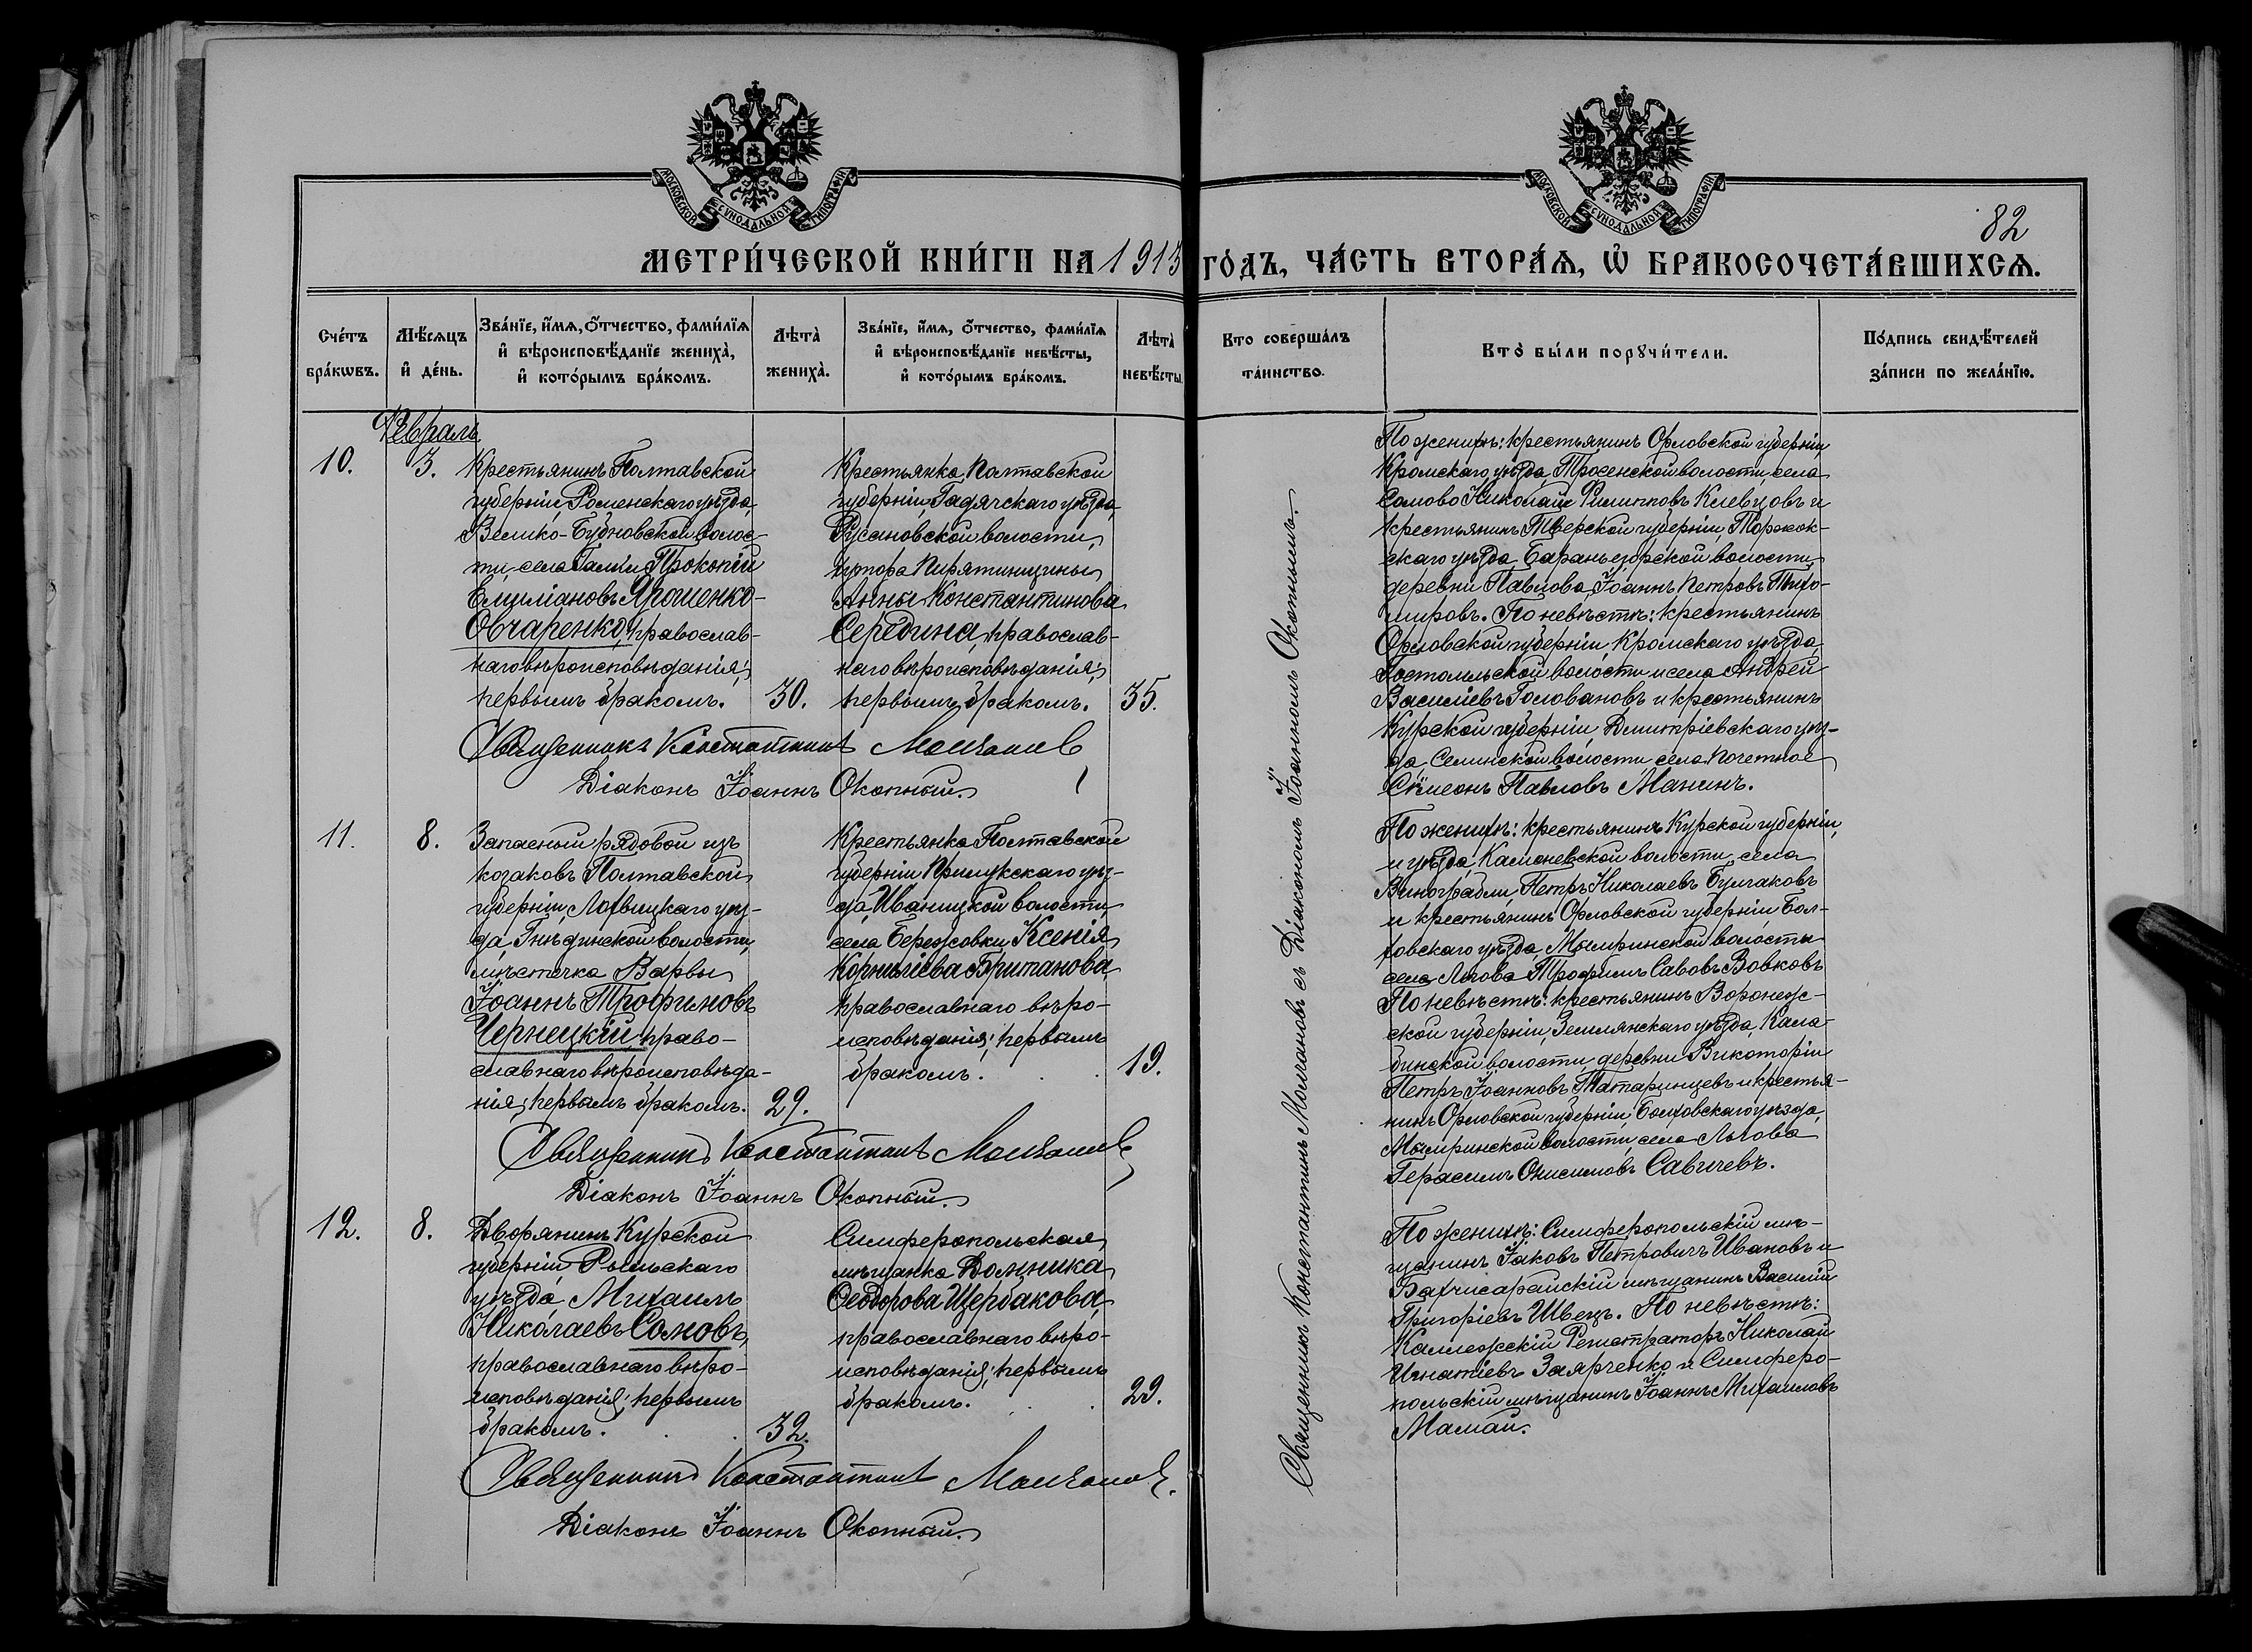 МОСКОВСКОЙ СѴНОДАЛЬНОЙ ТИПОГРАФІИ
МОСКОВСКОЙ СѴНОДАЛЬНОЙ ТИПОГРАФІИ
82
МЕТРИ́ЧЕСКОЙ КНИ́ГИ НА 1913 ГО́ДЪ, ЧА́СТЬ ВТОРА́Ѧ, Ѽ БРАКОСОЧЕТА́ВШИХСѦ.
Сче́тъ бра́кѡвъ.
Мѣ́сѧцъ и҆ де́нь.
Зва́нїе, и҆́мѧ, ѻ҆́тчество, фами́лїѧ и҆ вѣроисповѣ́данїе жениха̀, и҆ кото́рымъ бра́комъ.
Лѣта̀ жениха̀.
Зва́нїе, и҆́мѧ, ѻ҆́тчество, фами́лїѧ и҆ вѣроисповѣ́данїе невѣ́сты, и҆ кото́рымъ бра́комъ.
Лѣта̀ невѣ́сты.
Кто соверша́лъ та́инство.
Кто̀ бы́ли порꙋчи́тели.
По́дпись свидѣ́телей за́писи по жела́нїю.
Февраль
10.
3.
Крестьянинъ Полтавской
губерніи, Роменскаго уѣзда,
Велико-Бубновской волос-
ти, села Галки Прокопій
Емиліановъ Ярошенко-
Овчаренко, православ-
наго вѣроисповѣданія;
первымъ бракомъ.
30.
Крестьянка Полтавской
губерніи Гадячскаго уѣзда,
Русановской волости,
хутора Пирятинщины
Анна Константинова
Середина, православ-
наго вѣроисповѣданія;
первымъ бракомъ.
35.
Священникъ Константинъ Молчановъ
Діаконъ Іоаннъ Окопный.
По женихѣ: крестьянинъ Орловской губерніи,
Кромскаго уѣзда, Тросенской волости, села
Сомово Николай Филипповъ Клевцовъ и
крестьянинъ Тверской губерніи, Торжок-
скаго уѣзда Бараньегорской волости
деревни Павлова, Іоаннъ Петровъ Тихо-
мировъ. По невѣстѣ: крестьянинъ
Орловской губерніи, Кромскаго уѣзда,
Гостомльской волости и села Андрей
Василіевъ Головановъ и крестьянинъ
Курской губерніи, Димитріевскаго уѣз-
да, Селинской волости села Почетное
Сѵмеонъ Павловъ Манинъ.
11.
8.
Запасный рядовой изъ
козаковъ Полтавской
губерніи, Лохвицкаго уѣз-
да, Гнѣдинской волости,
мѣстечка Варвы
Іоаннъ Трофимовъ
Чернецкій, право-
славнаго вѣроисповѣда-
нія; первымъ бракомъ.
29.
Крестьянка Полтавской
губерніи Прилукскаго уѣз-
да, Иваницкой волости
села Бережовки Ксенія
Корниліева Британова
православнаго вѣро-
исповѣданія; первымъ
бракомъ.
19.
Священникъ Константинъ Молчановъ
Діаконъ Іоаннъ Окопный.
По женихѣ: крестьянинъ Курской губерніи,
и уѣзда, Каменевской волости, села
Винограбли, Петръ Николаевъ Булгаковъ
и крестьянинъ Орловской губерніи Бол-
ховскаго уѣзда, Мымринской волости
села Льгова Трофимъ Савовъ Вовковъ
По невѣстѣ: крестьянинъ Воронеж-
ской губерніи, Землянскаго уѣзда, Кала-
бинской волости, деревни Викоторіи
Петръ Іоанновъ Татаринцевъ и крестья-
нинъ Орловской губерніи, Болховскаго уѣзда,
Мымринской волости, села Льгова
Герасимъ Онисимовъ Савичевъ.
12.
8.
Дворянинъ Курской
губерніи Рыльскаго
уѣзда, Михаилъ
Николаевъ Сомовъ,
православнаго вѣро-
исповѣданія; первымъ
бракомъ.
32.
Симферопольская
мѣщанка Домника
Ѳеодорова Щербакова
православнаго вѣро-
исповѣданія; первымъ
бракомъ.
29.
Священникъ Константинъ Молчановъ.
Діаконъ Іоаннъ Окопный.
По женихѣ: Симферопольскій мѣ-
щанинъ Іаковъ Петровичъ Ивановъ и
Бахчисарайскій мѣщанинъ Василій
Григоріевъ Швецъ. По невѣстѣ:
Коллежскій Регистраторъ Николай
Игнатіевъ Заярченко и Симферо-
польскій мѣщанинъ Іоаннъ Михаиловъ
Мамай.
Священникъ Константинъ Молчановъ съ Діакономъ Іоанномъ Окопнымъ.